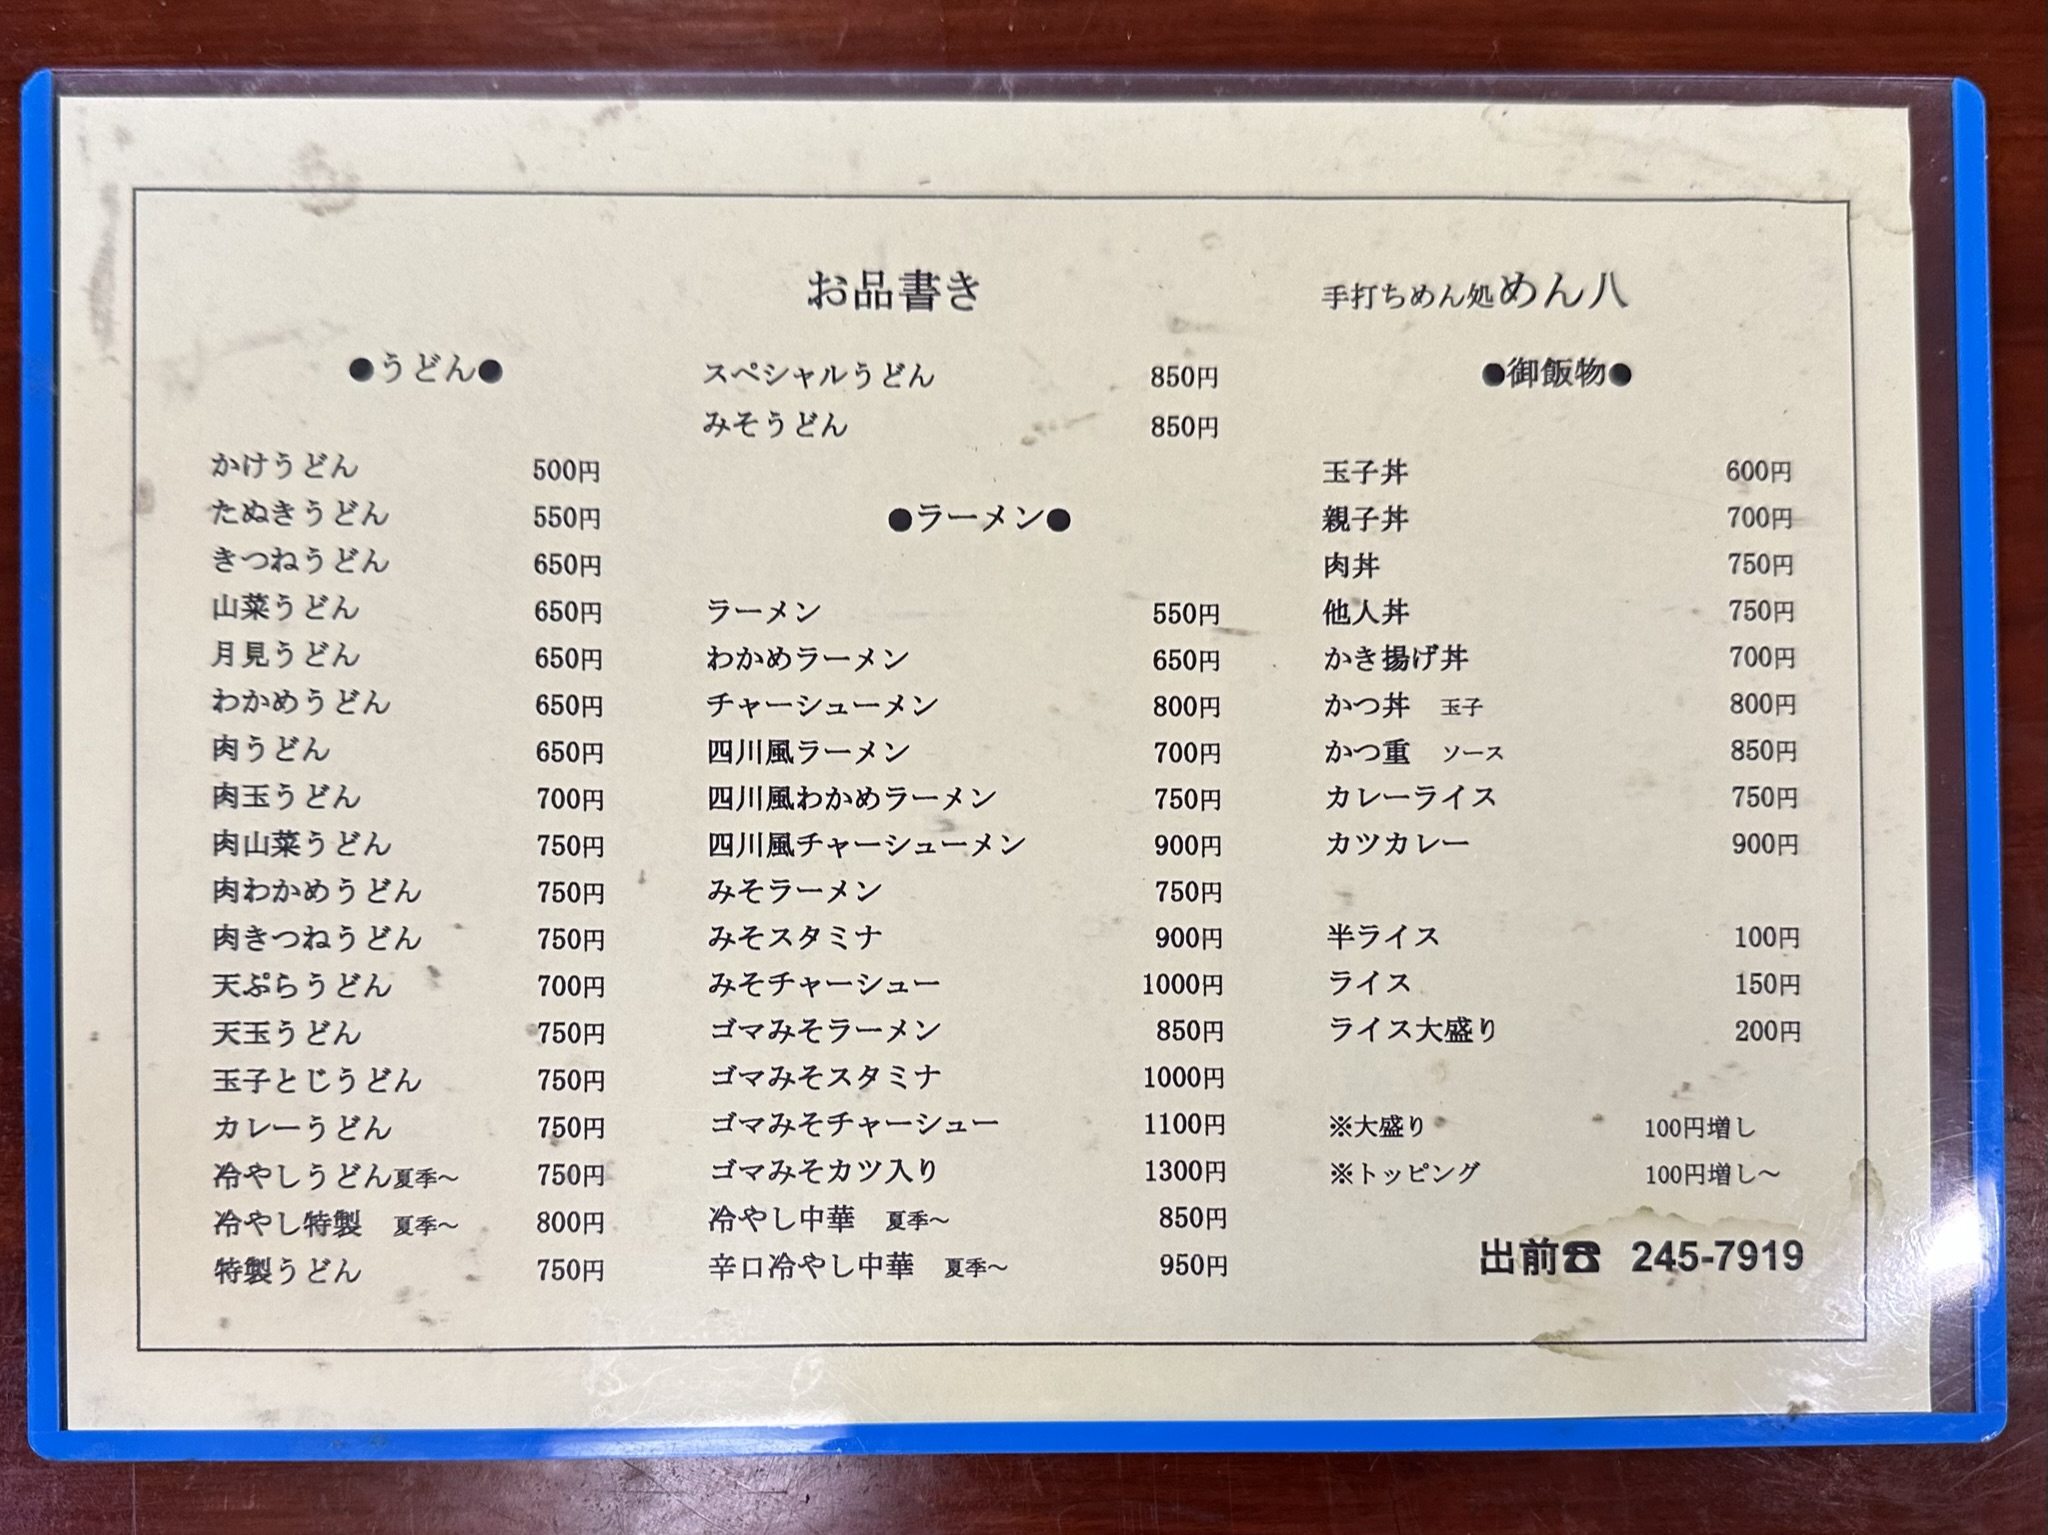 お品書き
手打ちめん処めん八
●うどん●
かけうどん 500円
たぬきうどん 550円
きつねうどん 650円
山菜うどん 650円
月見うどん 650円
わかめうどん 650円
肉うどん 650円
肉玉うどん 700円
肉山菜うどん 750円
肉わかめうどん 750円
肉きつねうどん 750円
天ぷらうどん 700円
天玉うどん 750円
玉子とじうどん 750円
カレーうどん 750円
冷やしうどん夏季～ 750円
冷やし特製 夏季～ 800円
特製うどん 750円
スペシャルうどん 850円
みそうどん 850円
●ラーメン●
ラーメン 550円
わかめラーメン 650円
チャーシューメン 800円
四川風ラーメン 700円
四川風わかめラーメン 750円
四川風チャーシューメン 900円
みそラーメン 750円
みそスタミナ 900円
みそチャーシュー 1000円
ゴマみそラーメン 850円
ゴマみそスタミナ 1000円
ゴマみそチャーシュー 1100円
ゴマみそカツ入り 1300円
冷やし中華 夏季～ 850円
辛口冷やし中華 夏季～ 950円
●御飯物●
玉子丼 600円
親子丼 700円
肉丼 750円
他人丼 750円
かき揚げ丼 700円
かつ丼 玉子 800円
かつ重 ソース 850円
カレーライス 750円
カツカレー 900円
半ライス 100円
ライス 150円
ライス大盛り 200円
※大盛り 100円増し
※トッピング 100円増し～
出前☎ 245-7919